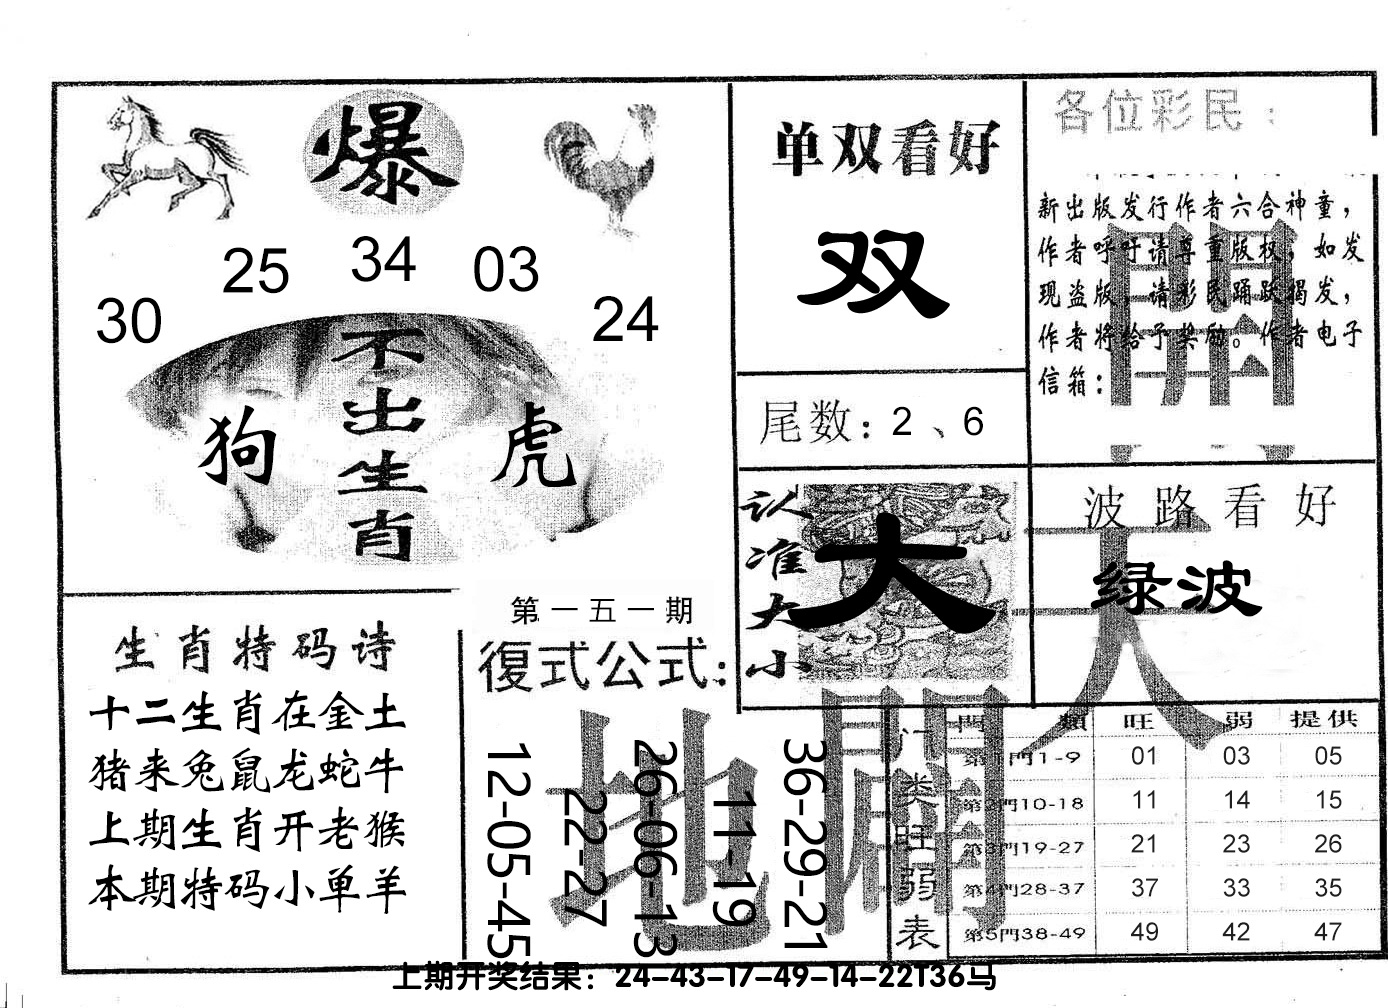 爆
25 34 03
30 24
不出生肖
狗 虎
单双看好
双
尾数：2、6
各位彩民：
新出版发行作者六合神童，
作者呼吁请尊重版权，如发
现盗版，请彩民踊跃揭发，
作者将给予奖励。作者电子
信箱：
開
认准大小
大
波路看好
绿波
天
生肖特码诗
十二生肖在金土
猪来兔鼠龙蛇牛
上期生肖开老猴
本期特码小单羊
第一五一期
復式公式：
12-05-45
22-27
26-06-13
11-19
36-29-21
地
门类旺弱表
門類 旺 弱 提供
第1門1-9 01 03 05
第2門10-18 11 14 15
第3門19-27 21 23 26
第4門28-37 37 33 35
第5門38-49 49 42 47
上期开奖结果：24-43-17-49-14-22T36马